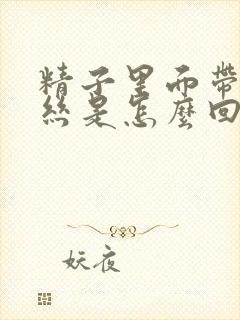 精子里面帶
絲是怎麼回
妖夜